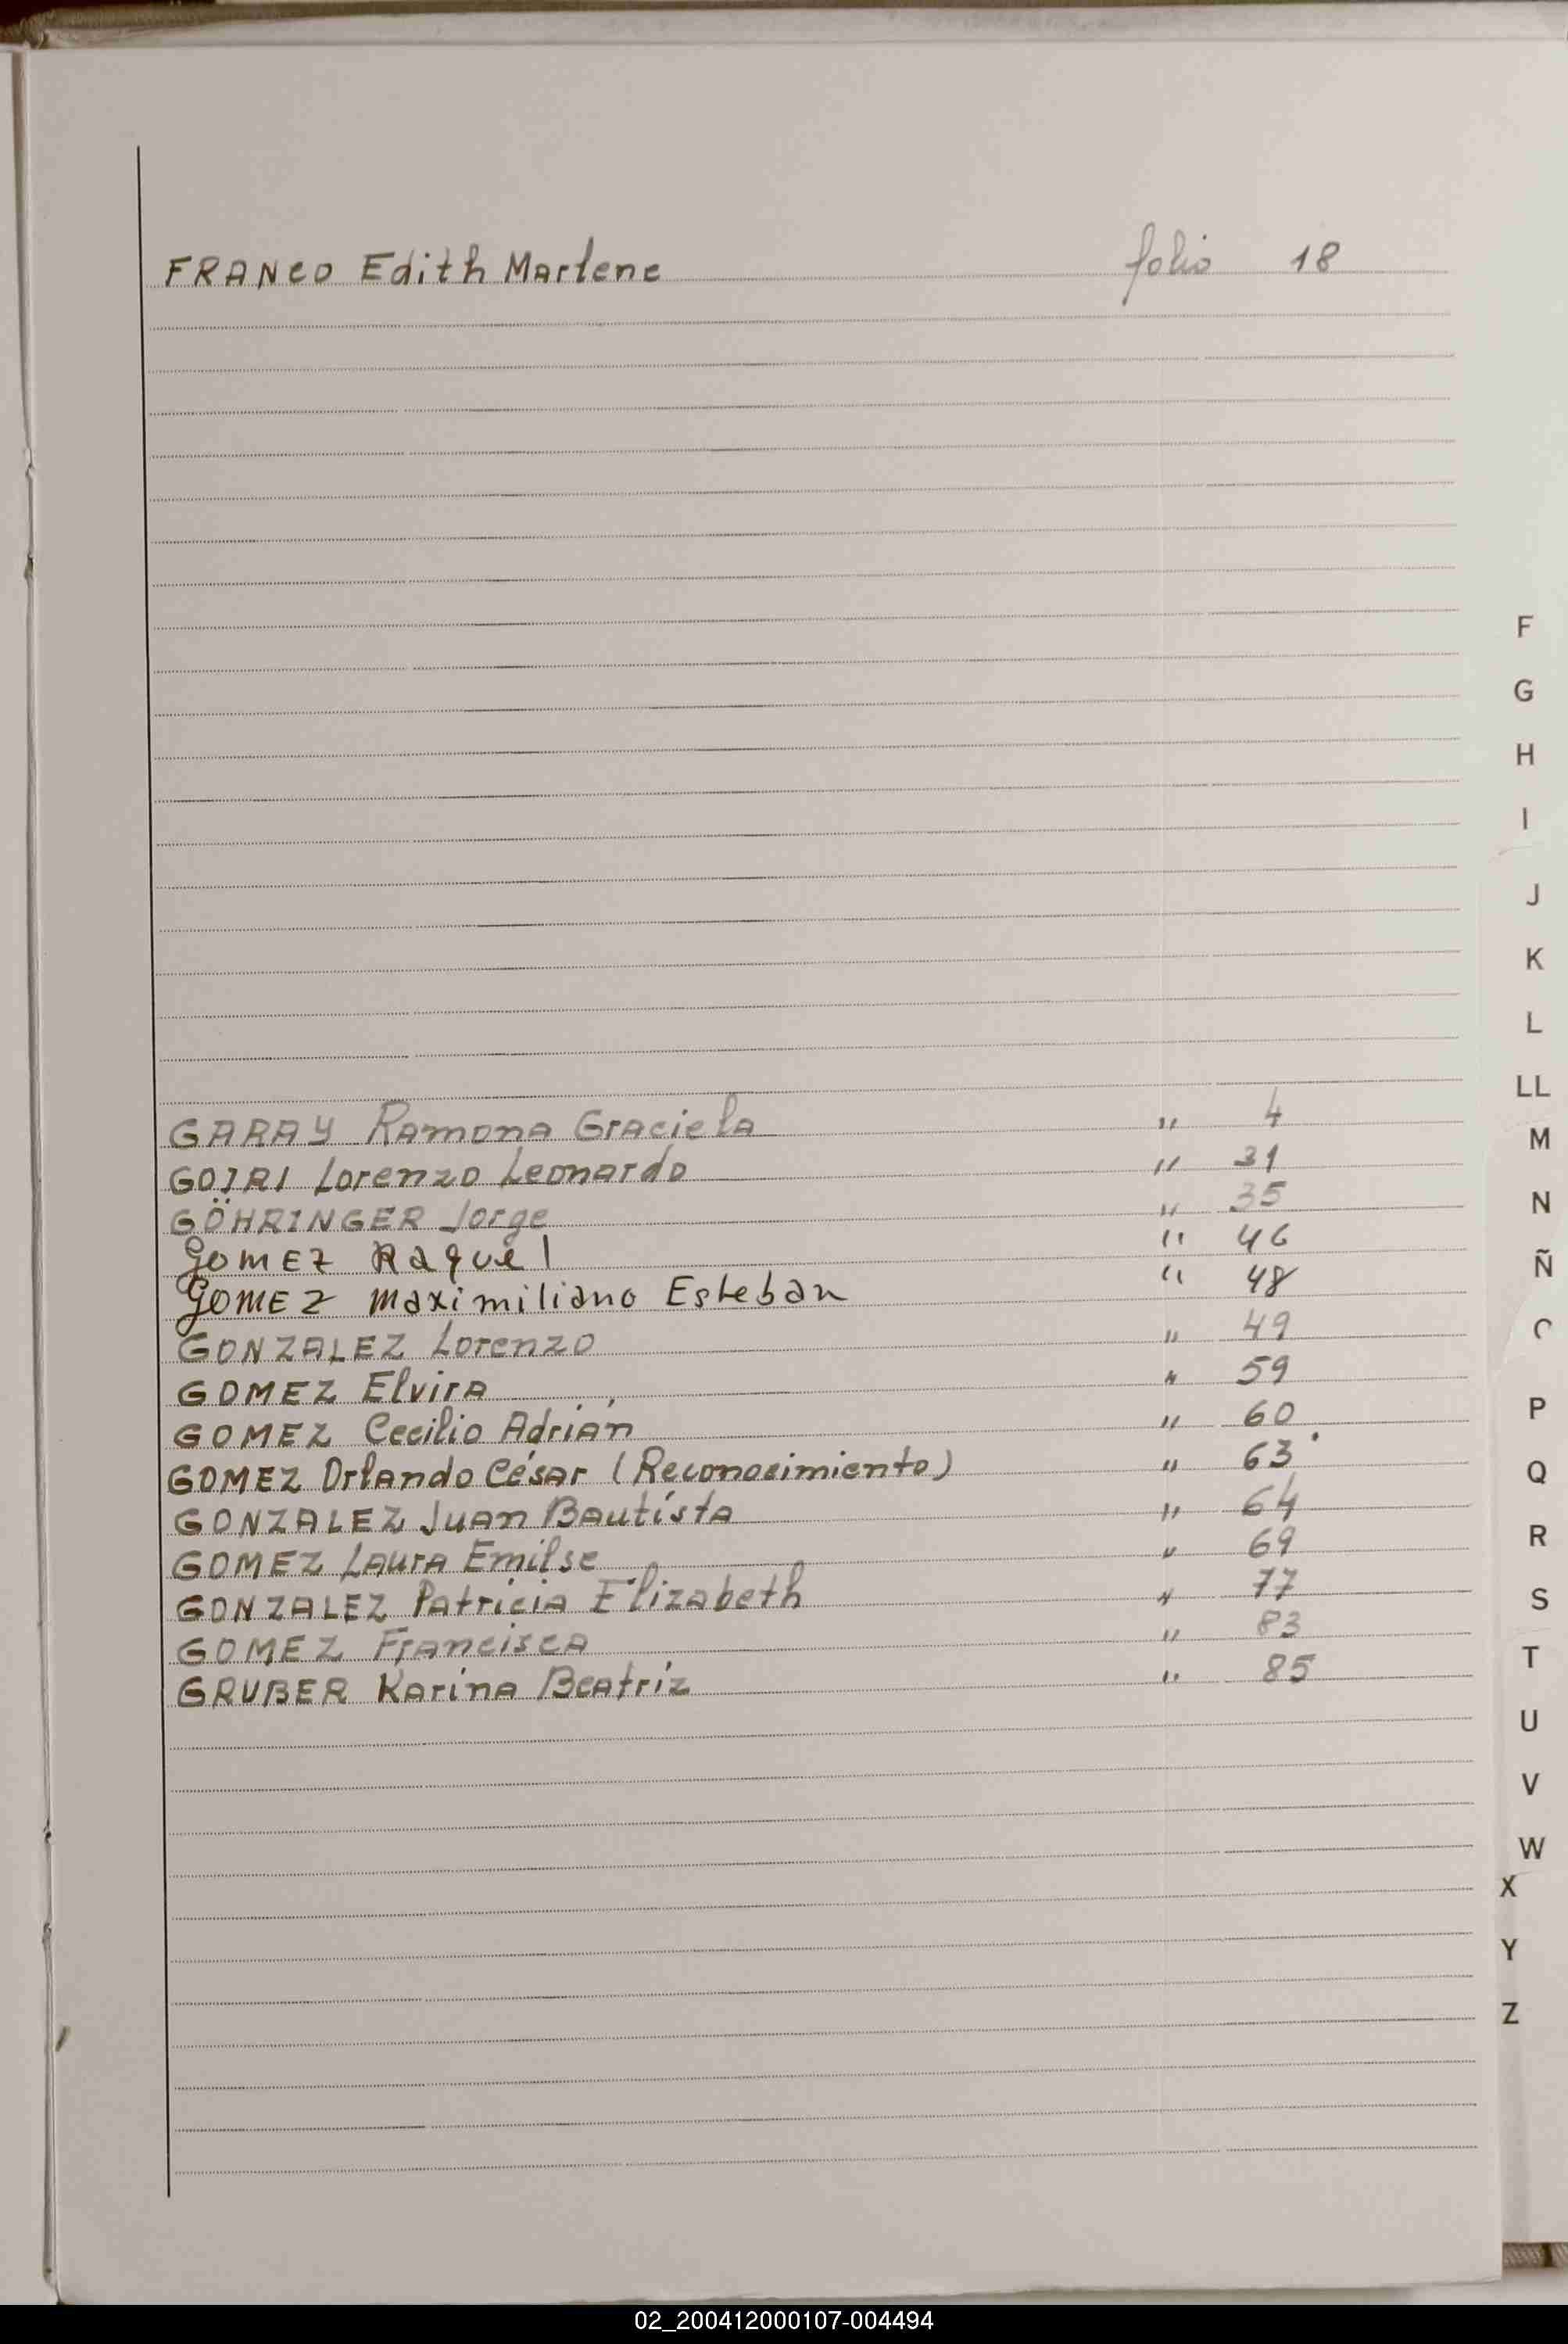 FRANCO Edith Marlene folio 18
GARAY Ramona Graciela " 4
GOJRI Lorenzo Leonardo " 31
GÖHRINGER Jorge " 35
GOMEZ Raquel " 46
GOMEZ Maximiliano Esteban " 48
GONZALEZ Lorenzo " 49
GOMEZ Elvira " 59
GOMEZ Cecilio Adrián " 60
GOMEZ Orlando César (Reconocimiento) " 63
GONZALEZ Juan Bautista " 64
GOMEZ Laura Emilse " 69
GONZALEZ Patricia Elizabeth " 77
GOMEZ Francisca " 83
GRUBER Karina Beatriz " 85
F
G
H
I
J
K
L
LL
M
N
Ñ
P
Q
R
S
T
U
V
W
X
Y
Z
02_200412000107-004494